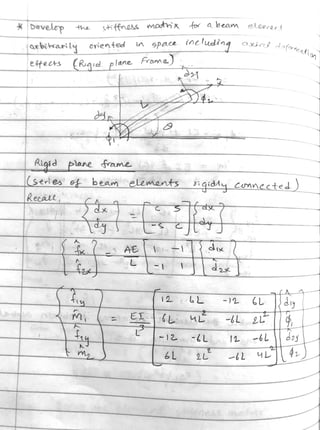 * Develop the stiffness matrix for a beam element
arbitrarily oriented in space including axial deformation
effects (Rigid plane frame)
d2y
x̂
L
φ2
d1y
θ
φ1
Rigid plane frame
(series of beam elements rigidly connected)
Recall,
{d̂x d̂y} = [c s -s c] {dx dy}
{f̂1x f̂2x} = AE/L [1 -1 -1 1] {d̂1x d̂2x}
f̂1y 12 6L -12 6L d̂1y
m̂1 = EI/L³ 6L 4L² -6L 2L² φ̂1
f̂1y -12 -6L 12 -6L d̂2y
m̂2 6L 2L² -6L 4L² φ̂2